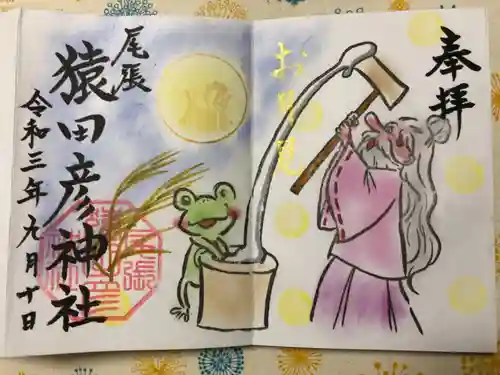 奉拝
お月見
尾張
猿田彦神社
令和三年九月十日